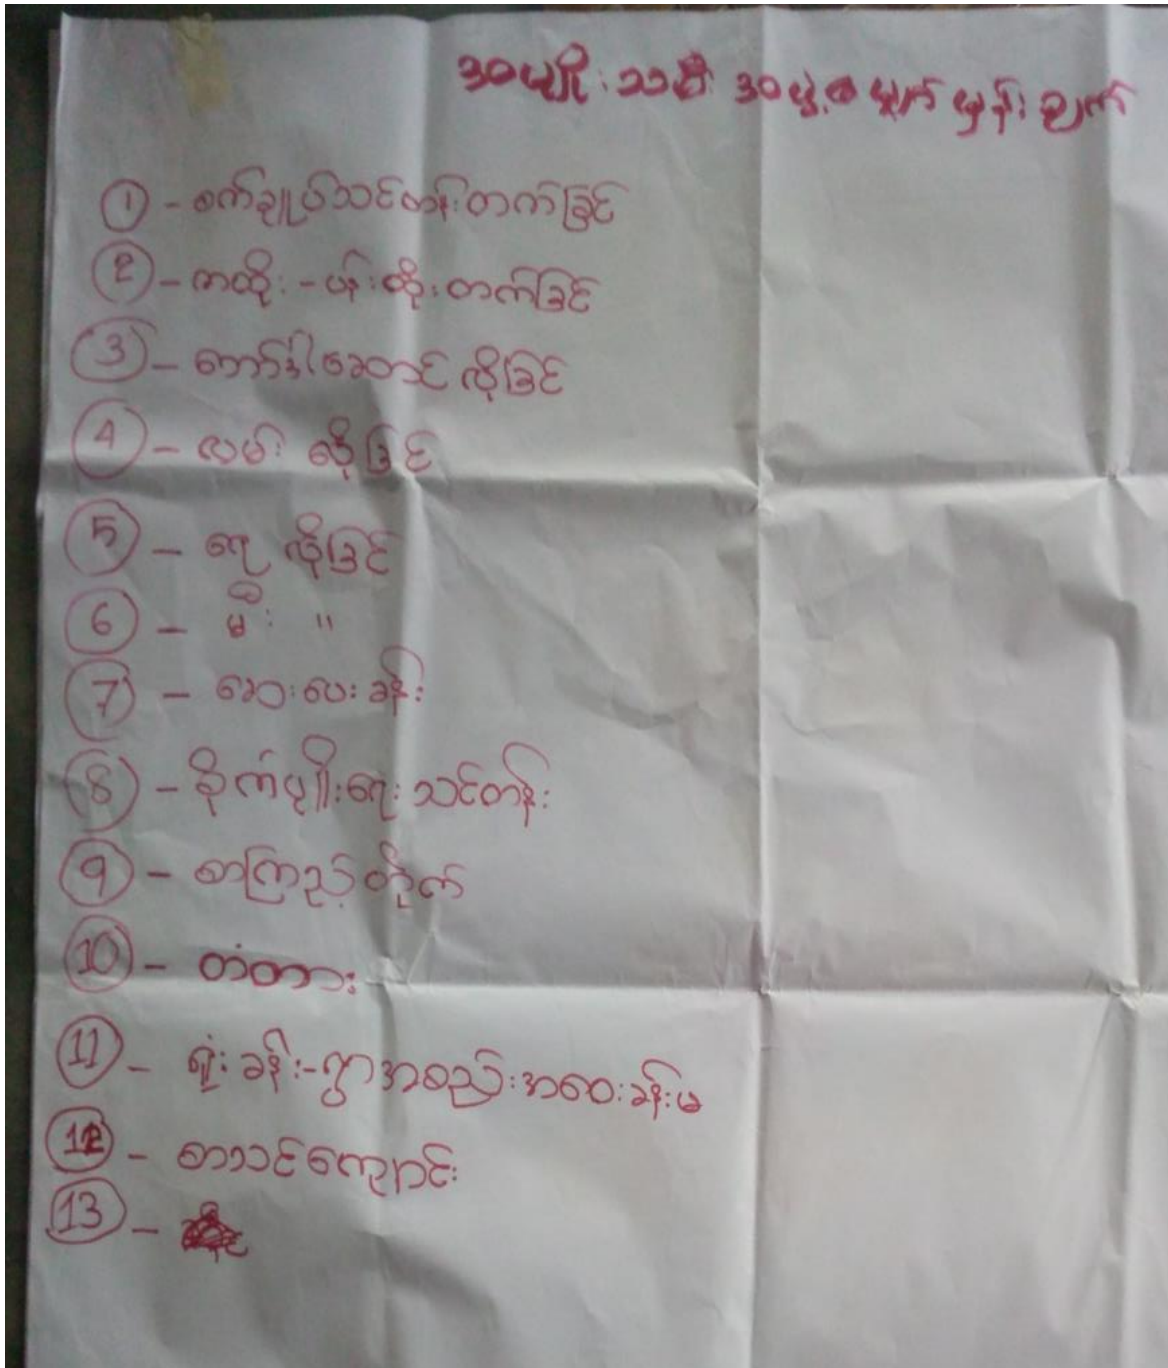 အမျိုးသမီး အဖွဲ့၏ မျှော်မှန်းချက်
① - စက်ချုပ်သင်တန်းတက်ခြင်
② - ဇာထိုး - ပန်းထိုးတက်ခြင်
③ - ဘော်ဒါဆောင် လိုခြင်
④ - လမ်း လိုခြင်
⑤ - ရေ လိုခြင်
⑥ - မီး "
⑦ - ဆေးပေးခန်း
⑧ - စိုက်ပျိုးရေး သင်တန်း
⑨ - စာကြည့်တိုက်
⑩ - တံတား
⑪ - ရုံးခန်း-ရွာအစည်းအဝေးခန်းမ
⑫ - စာသင်ကျောင်း
⑬ -